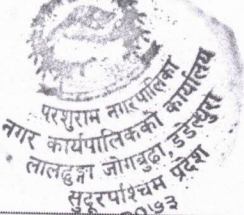 परशुराम नगरपालिका
नगर कार्यपालिकको कार्यालय
लालढुङ्गा जोगबुढा, डडेल्धुरा
सुदूरपश्चिम प्रदेश
२०७३